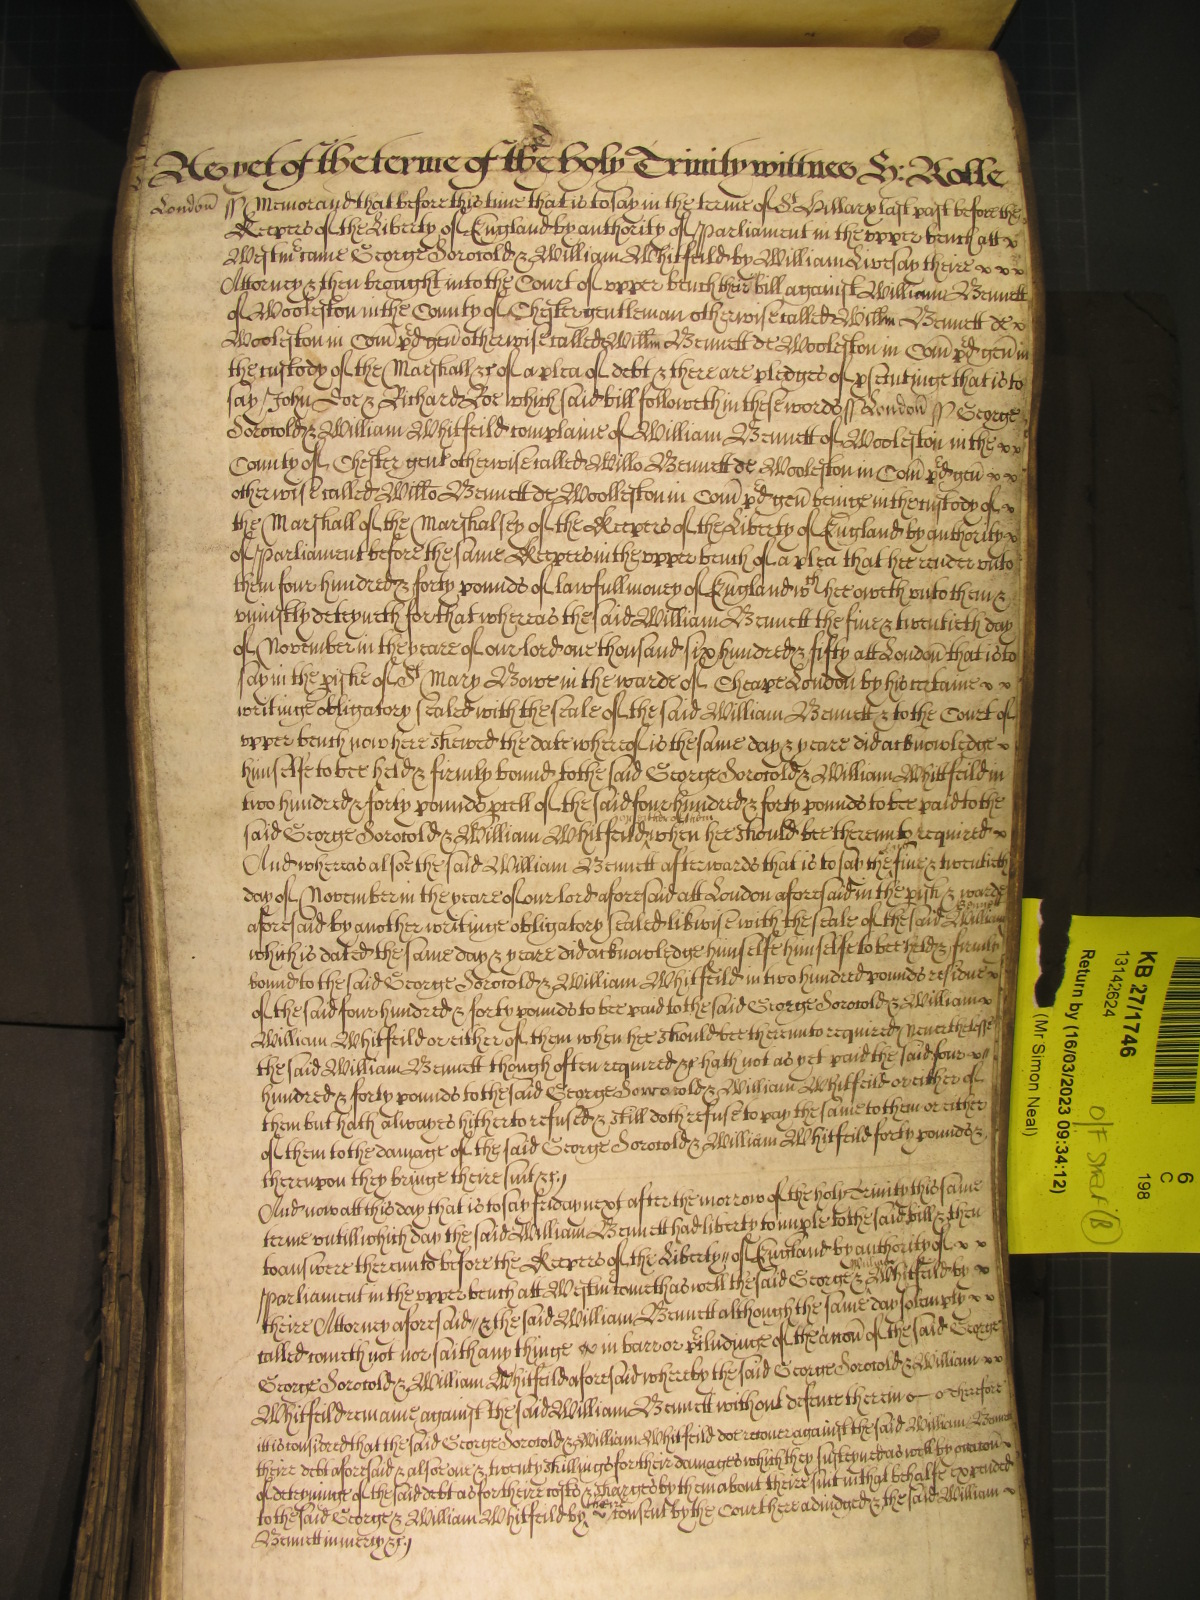 As yet of the terme of the holy Trinity wittnes H: Rolle
London ss Memorand that before this time that is to say in the terme of St Hillary last past before the
Keepers of the Liberty of England by authority of Parliament in the upper bench att
Westmr came George Sorocold & William Whitfeild by William Livesay theire
Attorney & then brought into the Court of upper bench their bill against William Bennett
of Woolleston in the County of Chester gentleman otherwise called Willm Bennett de
Woolleston in Com pd gen otherwise called Willm Bennett de Woolleston in Com pd gen in
the custody of the Marshall &c of a plea of debt & there are pledges of psecutinge that is to
say John Doe & Richard Roe which said bill followeth in these words ss London ss George
Sorocold & William Whitfeild complaine of William Bennett of Woolleston in the
County of Chester gent otherwise called Willo Bennett de Woolleston in Com pd gen
otherwise called Willo Bennett de Woolleston in Com pd gen beinge in the custody of
the Marshall of the Marshalsey of the Keepers of the Liberty of England by authority
of Parliament before the same Keepers in the upper bench of a plea that hee render unto
them four hundred & forty pounds of lawfull money of England wch hee oweth unto them &
uniustly deteyneth for that whereas the said William Bennett the five & twentieth day
of November in the yeare of our lord one thousand six hundred & fifty att London that is to
say in the pishe of St Mary Bowe in the warde of Cheape London by his certaine
writinge obligatory sealed with the seale of the said William Bennett & to the Court of
upper bench now here shewed the date whereof is the same day & yeare did acknowledge
himselfe to bee held & firmly bound to the said George Sorocold & William Whitfeild in
two hundred & forty pounds pcell of the said four hundred & forty pounds to bee paid to the
said George Sorocold & William Whitfeild or either of them when hee should bee thereunto required
And whereas alsoe the said William Bennett afterwards that is to say the five & twentieth
day of November in the yeare of our lord aforesaid att London aforesaid in the pish & warde
aforesaid by another writinge obligatory sealed likwise with the seale of the said William Bennett
which is dated the same day & yeare did acknowledge himselfe himselfe to bee held & firmly
bound to the said George Sorocold & William Whitfeild in two hundred pounds residue
of the said four hundred & forty pounds to bee paid to the said George Sorocold & William
William Whitfeild or either of them when hee should bee thereunto required Neverthelesse
the said William Bennett though often required &c hath not as yet paid the said four
hundred & forty pounds to the said George Sorocold & William Whitfeild or either of
them but hath alwayes hitherto refused & still doth refuse to pay the same to them or either
of them to the damage of the said George Sorocold & William Whitfeild forty pounds &
thereupon they bringe theire suit &c
And now att this day that is to say friday next after the morrow of the holy Trinity this same
terme untill which day the said William Bennett had liberty to imple to the said bill & then
to answere thereunto before the Keepers of the Liberty of England by authority of
Parliament in the upper bench att Westmr cometh as well the said George & William Whitfeild by
theire Attorney aforesaid & the said William Bennett although the same day solemply
called cometh not nor saith any thinge in barr or pcludinge of the accon of the said George
George Sorocold & William Whitfeild aforesaid whereby the said George Sorocold & William
Whitfeild remaine against the said William Bennett without defence therein Therefore
itt is considred that the said George Sorocold & William Whitfeild doe recover against the said William Bennett
theire debt aforesaid & alsoe one & twenty shillings for their damages which they susteyned as well by occacon
of deteyninge of the said debt as for theire costs & charges by them about theire suit in that behalfe expended
to the said George & William Whitfeild by theire consent by the Court here adiudged & the said William
Bennett in mercy &c
KB 27/1746
13142624
Return by (16/03/2023 09:34:12)
(Mr Simon Neal)
6
C
198